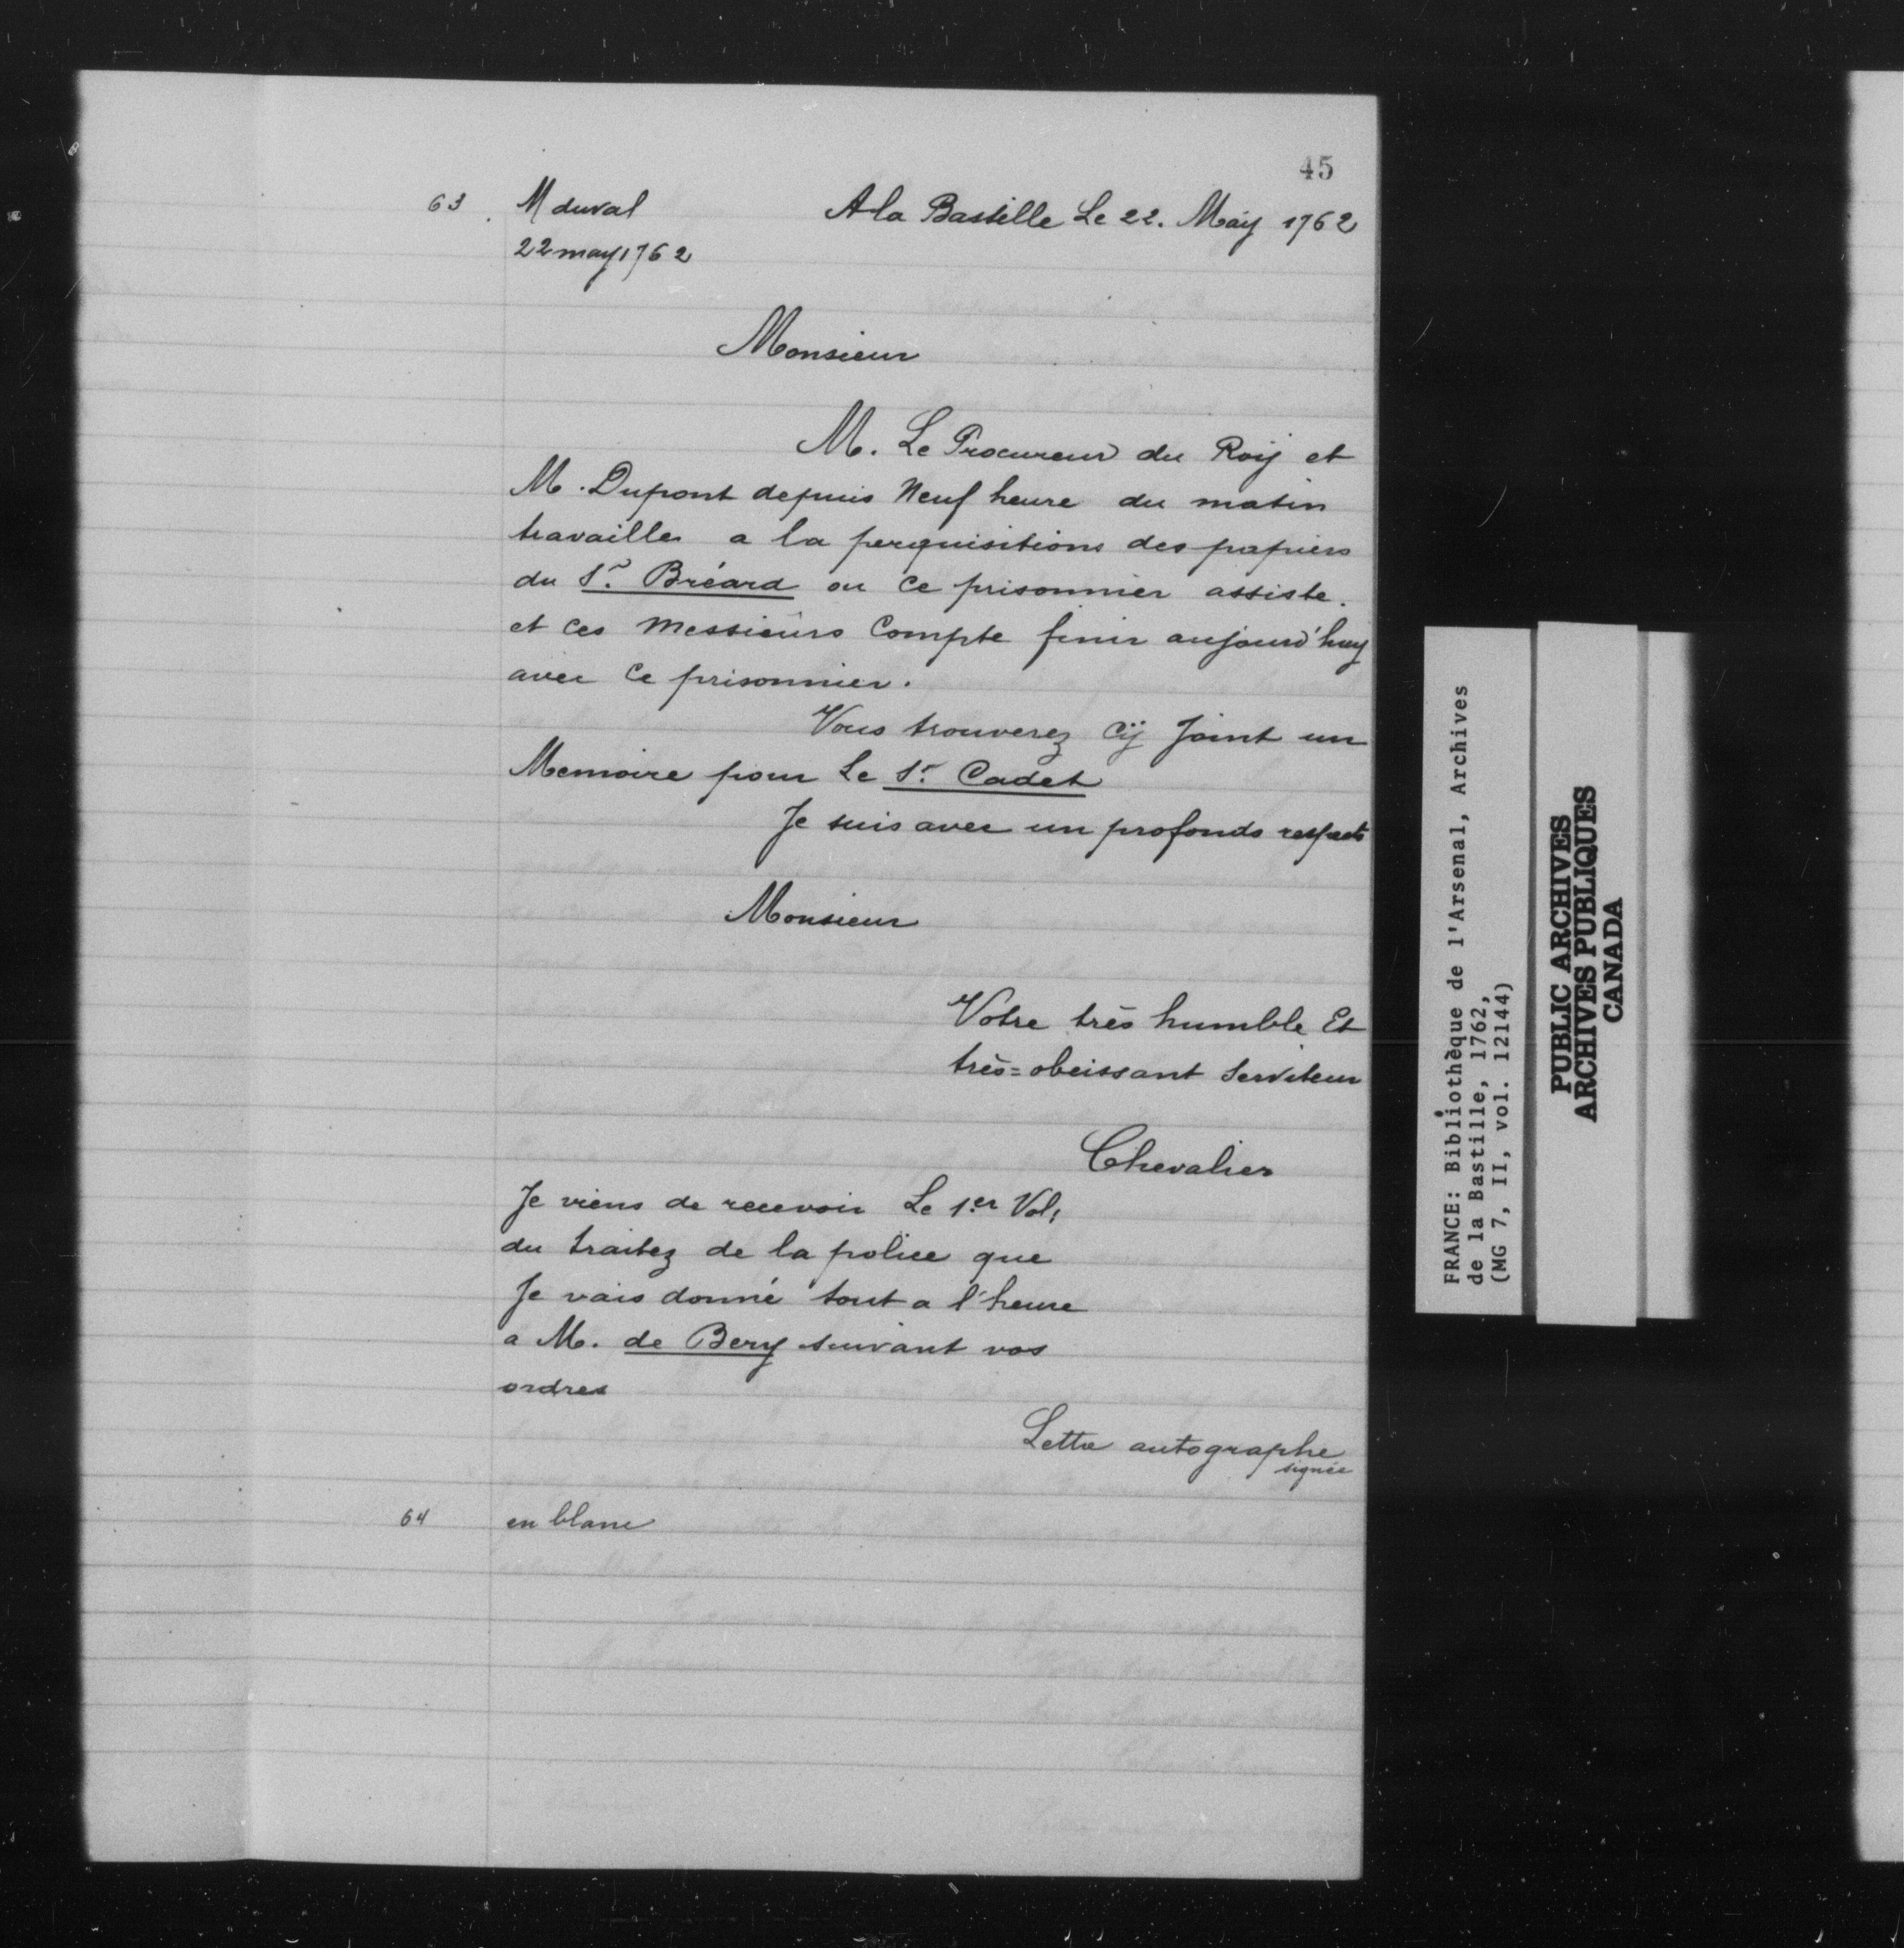 45
63. M duval
A la Bastille Le 22. Maÿ 1762
22 may 1762
Monsieur
M. Le Procureur du Roÿ et
M. Dupont depuis Neuf heure du matin
travailler a la perquisitions des papiers
du Sr. Bréard ou ce prisonnier assiste.
et ces Messieurs Compte finir aujourd'huy
avec ce prisonnier.
Vous trouverez cÿ Joint un
Memoire pour Le Sr. Cadet
Je suis avec un profonds respects
Monsieur
Votre très humble Et
très=obeissant Serviteur
Chevalier
Je viens de recevoir Le 1.er Vol:
du traitez de la police que
Je vais donné tout a l'heure
a M. de Bery suivant vos
ordres
Lettre autographe
signée
64 en blanc
FRANCE: Bibliothèque de l'Arsenal, Archives
de la Bastille, 1762,
(MG 7, II, vol. 12144)
PUBLIC ARCHIVES
ARCHIVES PUBLIQUES
CANADA